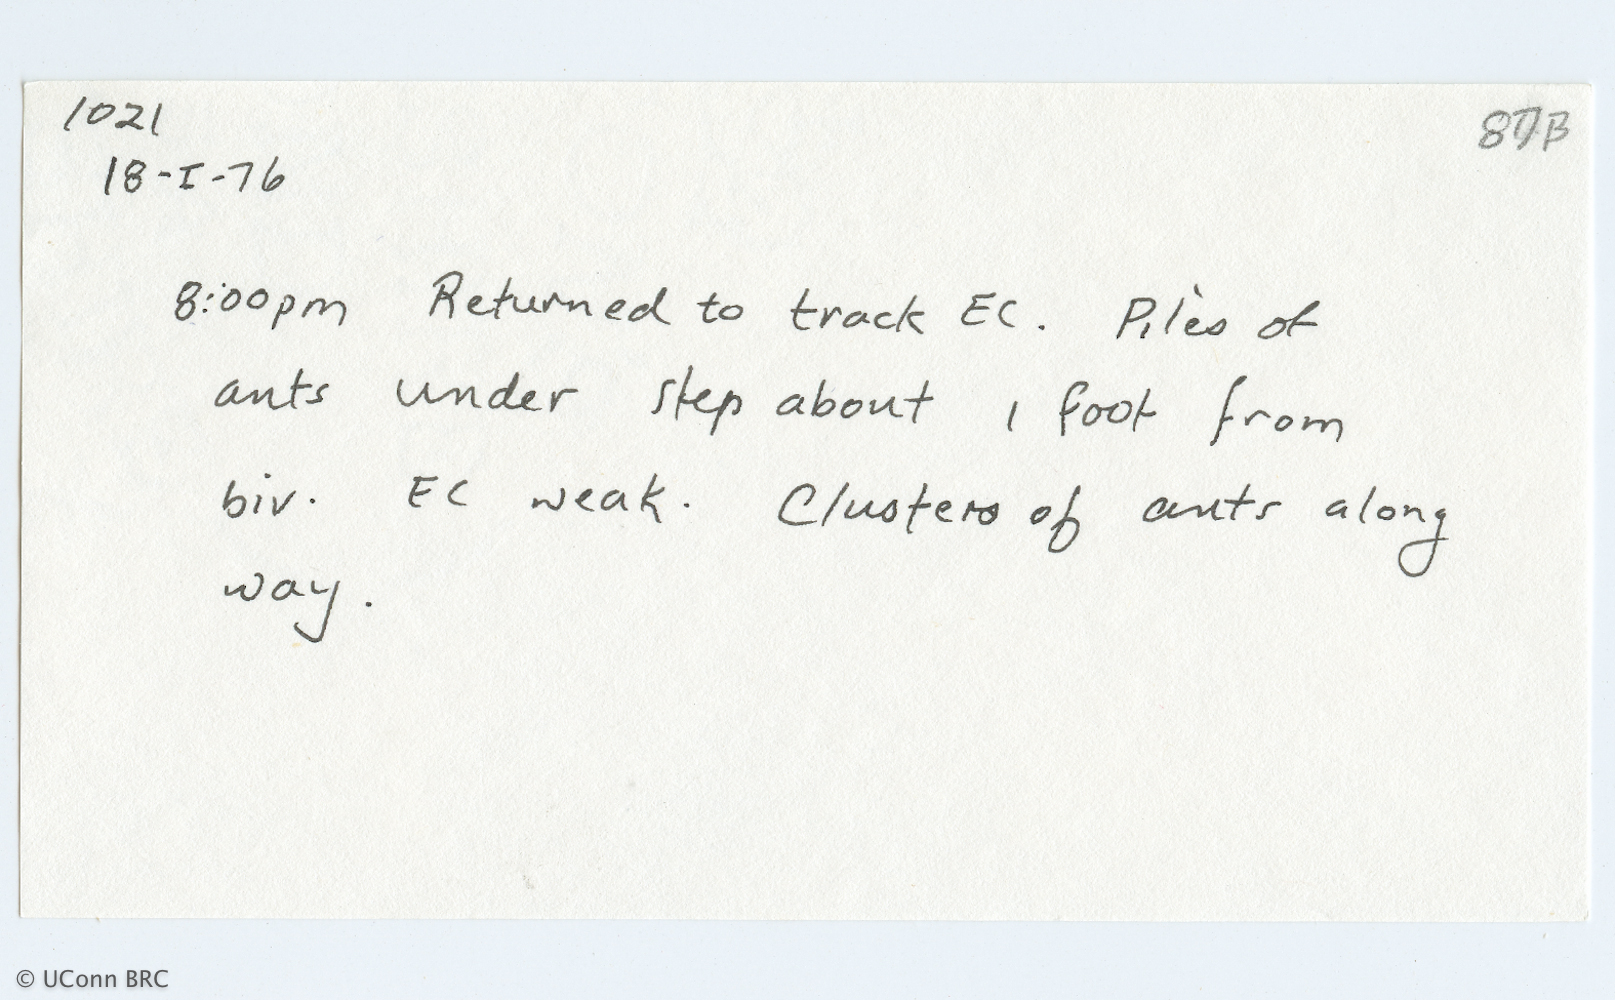 1021
87B
18-I-76
8:00pm Returned to track EC. Piles of
ants under step about 1 foot from
biv. EC weak. Clusters of ants along
way.
© UConn BRC